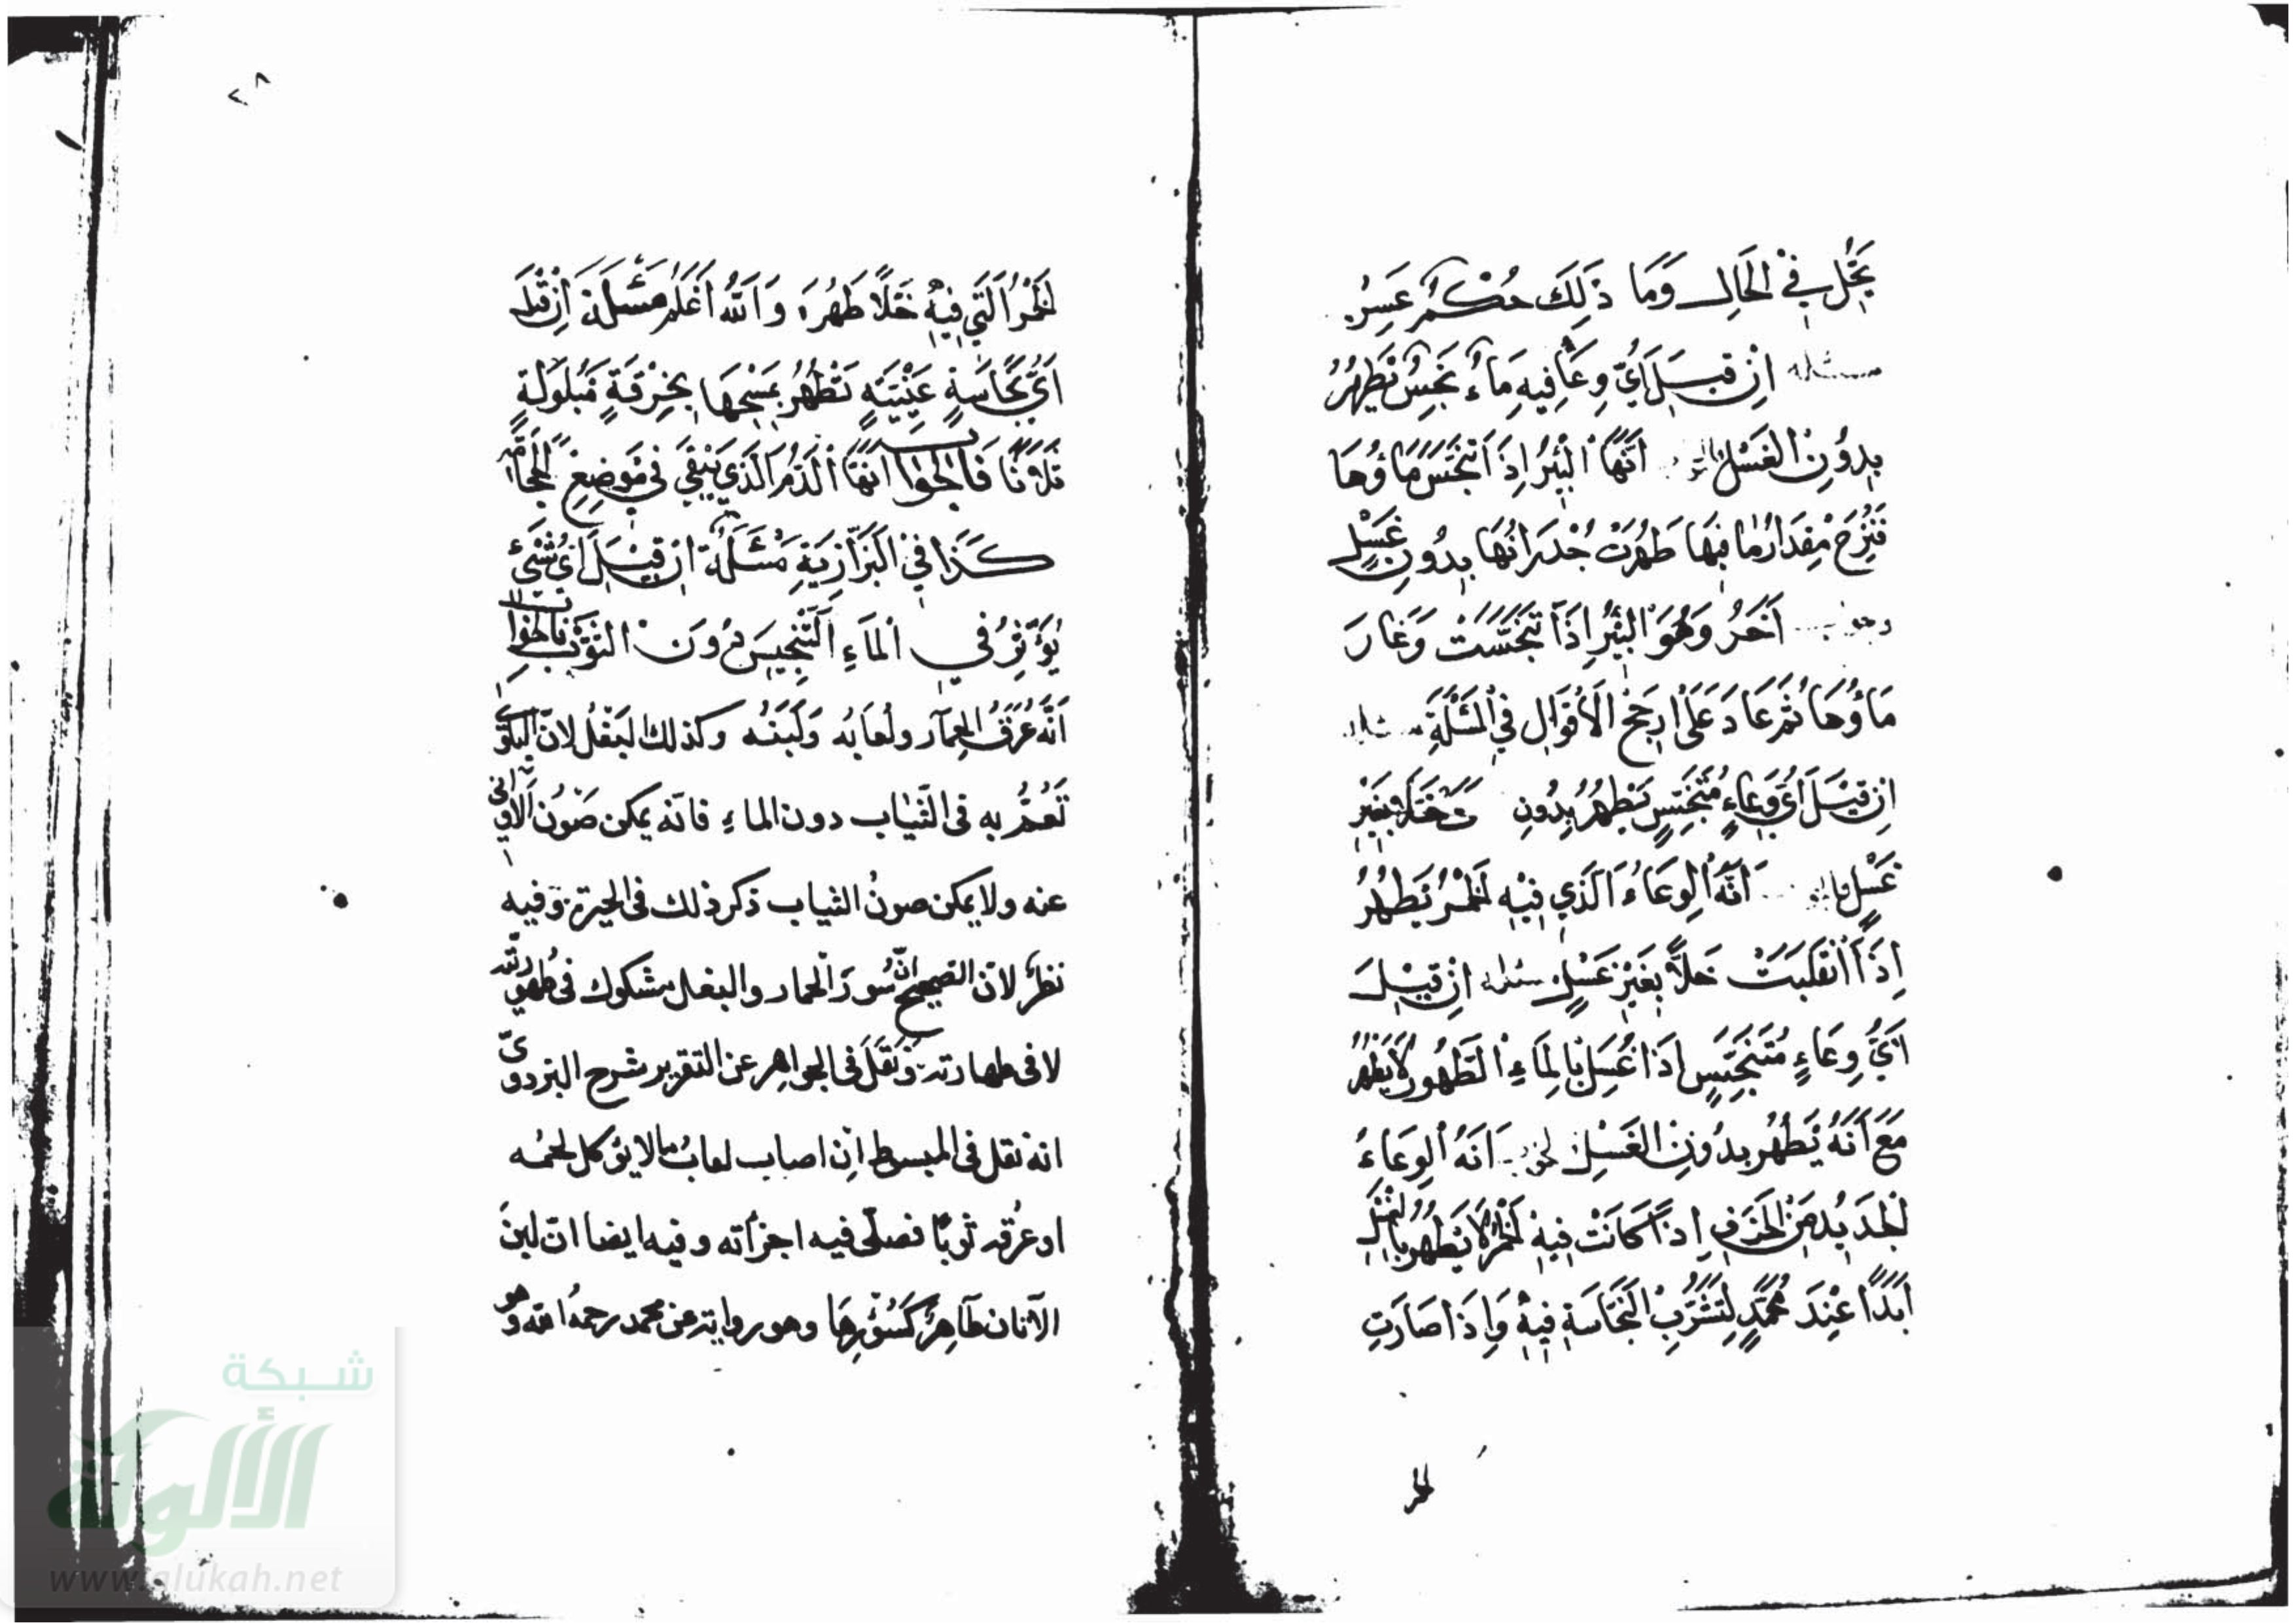 يحل في الحال وما ذلك حكم عسر
مسئلة ان قيل اي وعا فيه ماء نجس يطهر
بدون الغسل انها البئر اذا تنجس ماؤها
فنزح مقدار ما فيها طهرت جدرانها بدون غسل
آخر وهو البئر اذا تنجست وغار
ماؤها ثم عاد على ارجح الاقوال في المسئلة
ان قيل اي وعاء متنجس يطهر بدون بغير
غسل انه الوعاء الذي فيه الخمر يطهر
اذا انقلبت خلا بغير غسل مسئلة ان قيل
اي وعاء متنجس اذا غسل بالماء الطهور لا يطهر
مع انه يطهر بدون الغسل انه الوعاء
الجديد من الخزف اذا كانت فيه الخمر لا يطهر بالغسل
ابدا عند محمد لتشرب النجاسة فيه واذا صارت
الخمر
٢٨
الخمر التي فيه خلا طهره والله اعلم مسئلة ان قيل
اي نجاسة عينية تطهر بمسحها بخرقة مبلولة
ثلاثا فالجواب انها الدم الذي يبقى في موضع الحجامة
كذا في البزازية مسئلة ان قيل اي شئ
يؤثر في الماء التنجيس دون الثوب فالجواب
انه عرق الحمار ولعابه ولبنه وكذلك البغل لان البلوى
تعم به فى الثياب دون الماء فانه يمكن صون الاوانى
عنه ولا يمكن صون الثياب ذكر ذلك فى الحيرة وفيه
نظر لان الصحيح ان سور الحمار والبغل مشكوك فى طهوريته
لا فى طهارته ونقل فى الجواهر عن التقرير شرح البزدوى
انه نقل فى المبسوط ان اصاب لعاب ما لا يؤكل لحمه
او عرقه ثوبا فصلى فيه اجزأته وفيه ايضا ان لبن
الاتان طاهر كسؤرها وهو رواية عن محمد رحمه الله وهو
شبكة
الألوكة
www.alukah.net